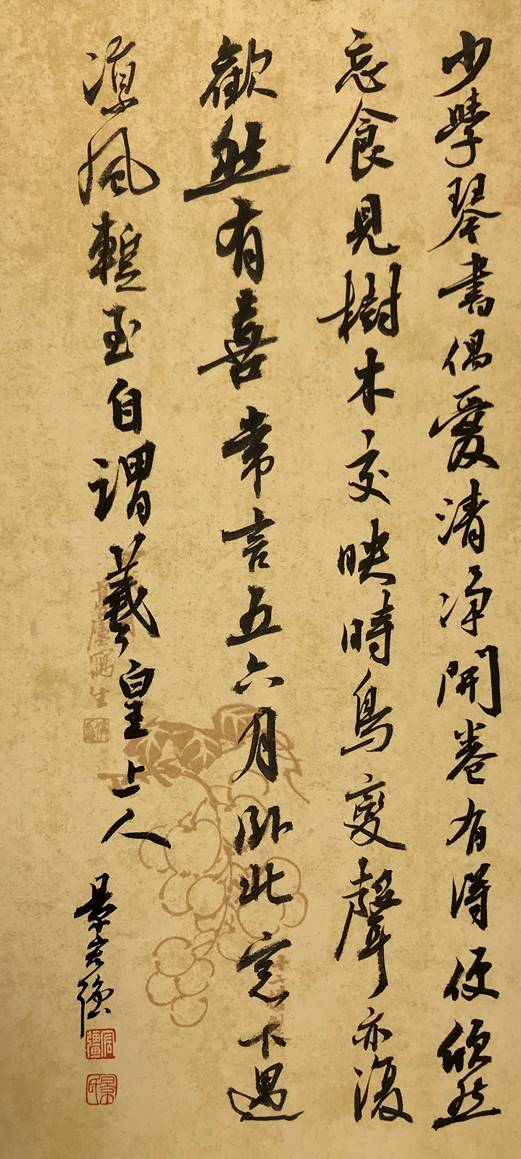 少學琴書偶愛清净開卷有得便欣然
忘食見樹木交映時鳥變聲亦復
歡然有喜常言五六月卧北窓下遇
凉風暫至自謂羲皇上人
景